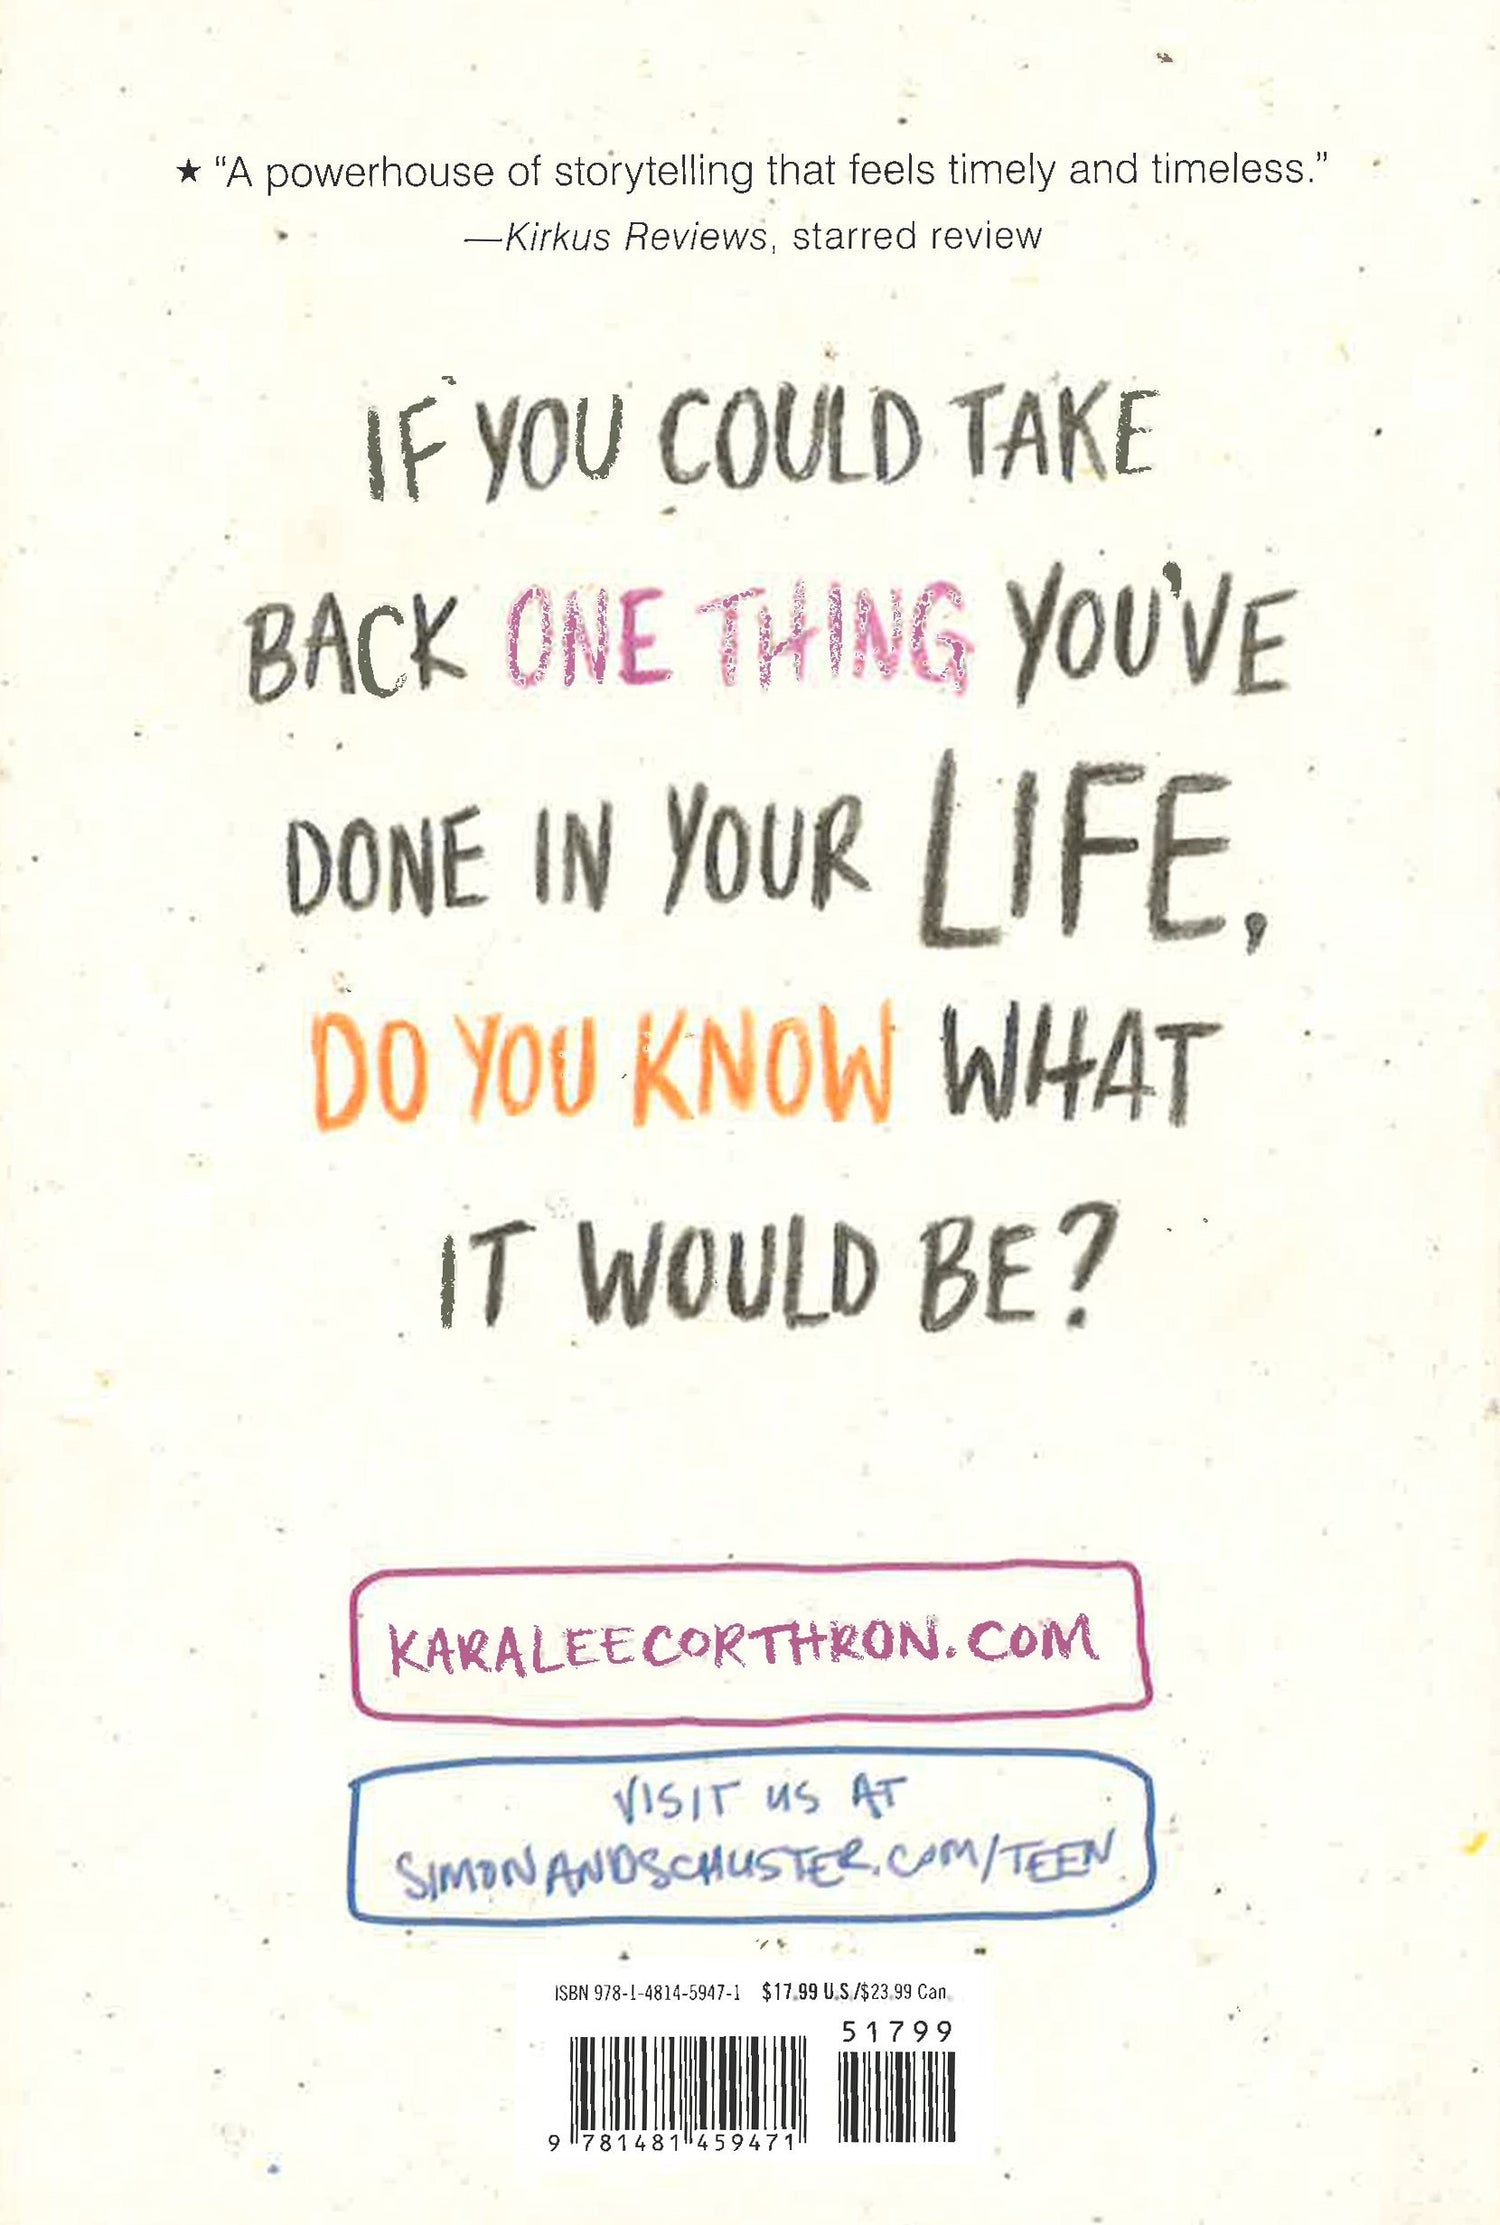 ★ “A powerhouse of storytelling that feels timely and timeless.”
—Kirkus Reviews, starred review
IF YOU COULD TAKE
BACK ONE THING YOU'VE
DONE IN YOUR LIFE,
DO YOU KNOW WHAT
IT WOULD BE?
KARALEECORTHRON.COM
VISIT US AT
SIMONANDSCHUSTER.COM/TEEN
ISBN 978-1-4814-5947-1 $17.99 U.S./$23.99 Can.
51799
9 781481 459471